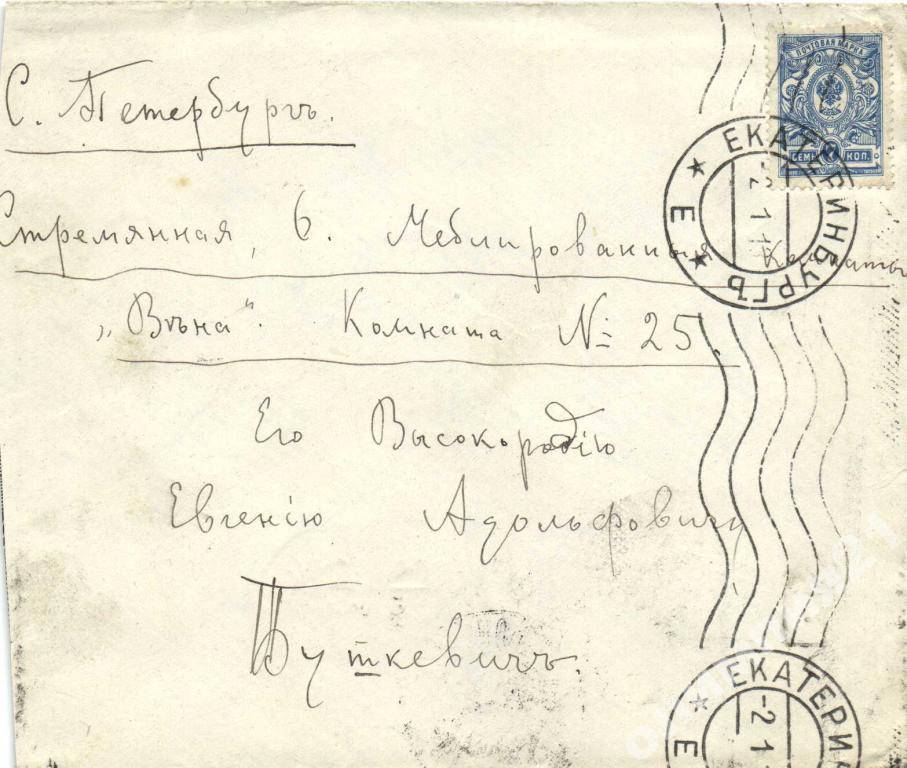 С. Петербургъ.
Стремянная, 6. Меблированныя Комнаты
„Вѣна". Комната № 25.
Его Высокородію
Евгенію Адольфовичу
ПОЧТОВАЯ МАРКА
СЕМЬ КОП.
ЕКАТЕРИНБУРГЪ
Е
-2 1
ЕКАТЕРИН
Е
-2 1